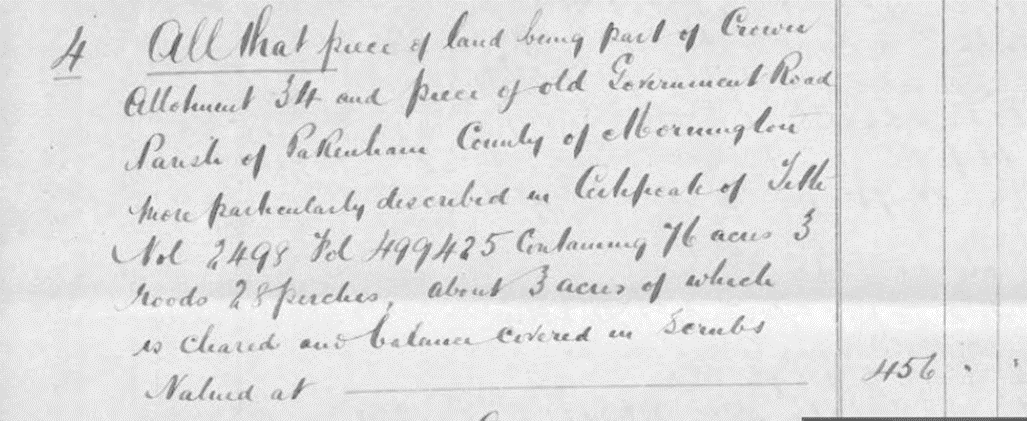 4 All that piece of land being part of Crown
Allotment 34 and piece of old Government Road
Parish of Pakenham County of Mornington
more particularly described in Certificate of Title
Vol 2498 Fol 499425 Containing 76 acres 3
roods 28 perches, about 3 acres of which
is cleared and balance covered in Scrubs
Valued at 456 " "